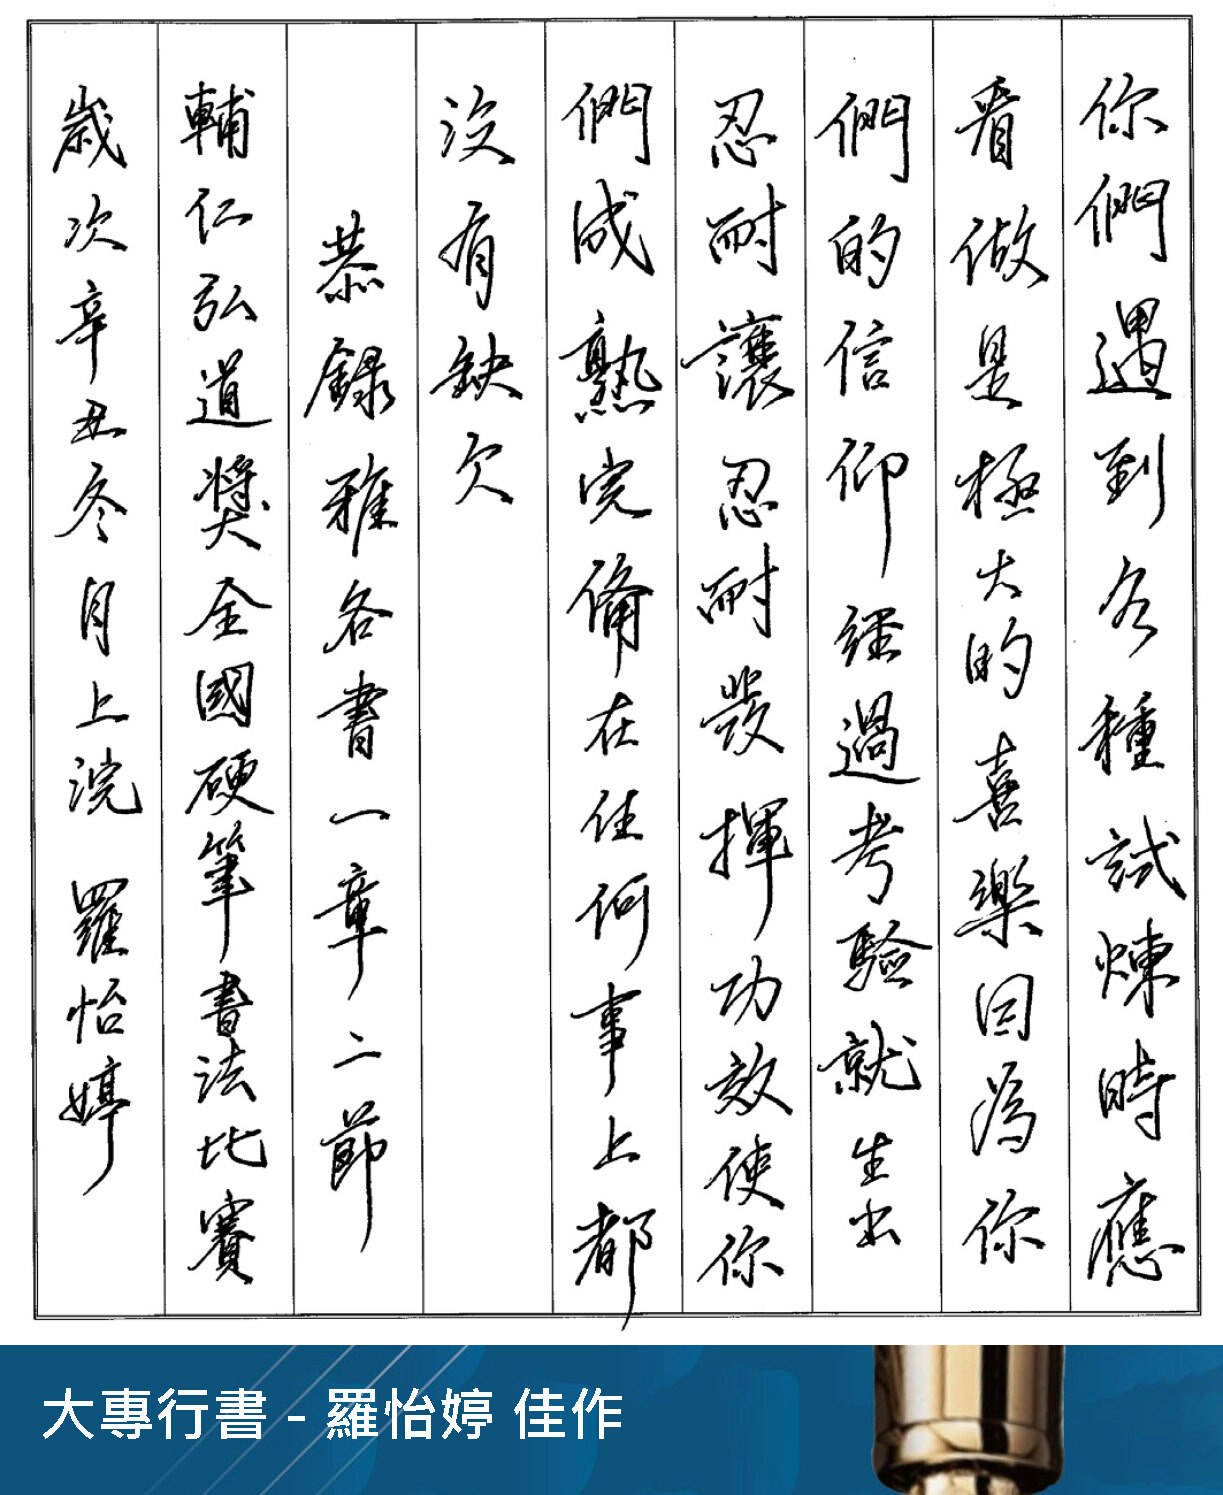 你們遇到各種試煉時應
看做是極大的喜樂因為你
們的信仰經過考驗就生出
忍耐讓忍耐發揮功效使你
們成熟完備在任何事上都
沒有缺欠
恭錄雅各書一章二節
輔仁弘道獎全國硬筆書法比賽
歲次辛丑冬月上浣 羅怡婷
大專行書 - 羅怡婷 佳作